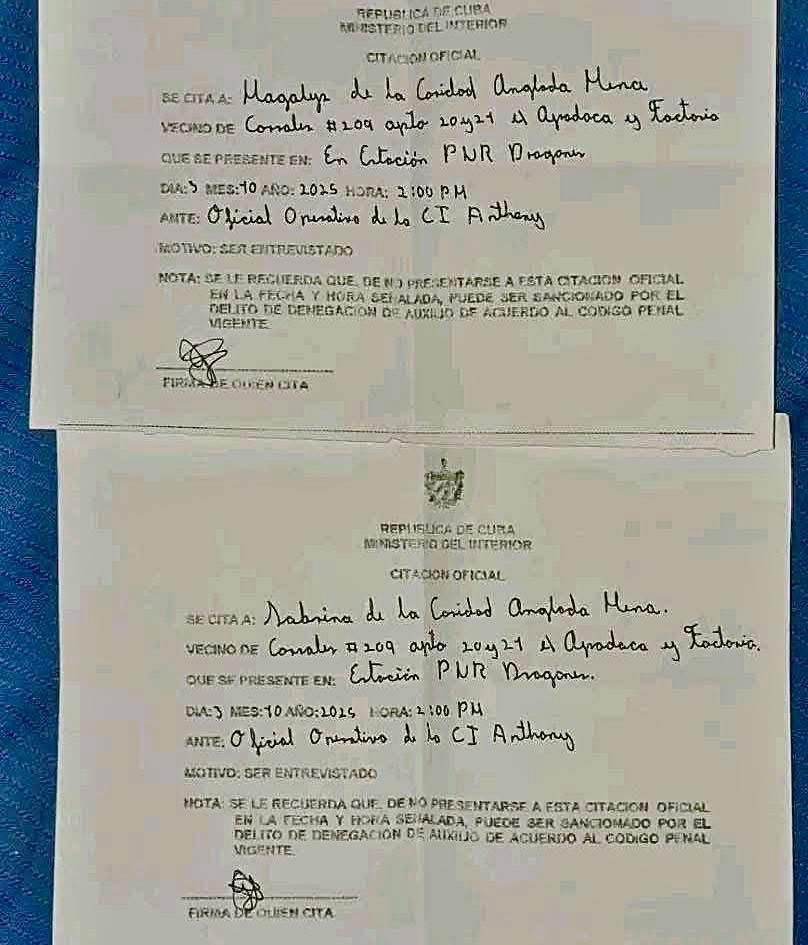 REPUBLICA DE CUBA
MINISTERIO DEL INTERIOR
CITACION OFICIAL
SE CITA A: Magalys de la Caridad Anglada Mena
VECINO DE Corrales #209 apto 20y21 e/ Apodaca y Factoria
QUE SE PRESENTE EN: En Estación PNR Dragones
DIA: 3 MES: 10 AÑO: 2025 HORA: 2:00 PM
ANTE: Oficial Operativo de la CI Anthony
MOTIVO: SER ENTREVISTADO
NOTA: SE LE RECUERDA QUE, DE NO PRESENTARSE A ESTA CITACION OFICIAL
EN LA FECHA Y HORA SEÑALADA, PUEDE SER SANCIONADO POR EL
DELITO DE DENEGACION DE AUXILIO DE ACUERDO AL CODIGO PENAL
VIGENTE
FIRMA DE QUIEN CITA
REPUBLICA DE CUBA
MINISTERIO DEL INTERIOR
CITACION OFICIAL
SE CITA A: Sabrina de la Caridad Anglada Mena.
VECINO DE Corrales #209 apto 20y21 e/ Apodaca y Factoria.
QUE SE PRESENTE EN: Estación PNR Dragones.
DIA: 3 MES: 10 AÑO: 2025 HORA: 2:00 PM
ANTE: Oficial Operativo de la CI Anthony
MOTIVO: SER ENTREVISTADO
NOTA: SE LE RECUERDA QUE, DE NO PRESENTARSE A ESTA CITACION OFICIAL
EN LA FECHA Y HORA SEÑALADA, PUEDE SER SANCIONADO POR EL
DELITO DE DENEGACION DE AUXILIO DE ACUERDO AL CODIGO PENAL
VIGENTE.
FIRMA DE QUIEN CITA